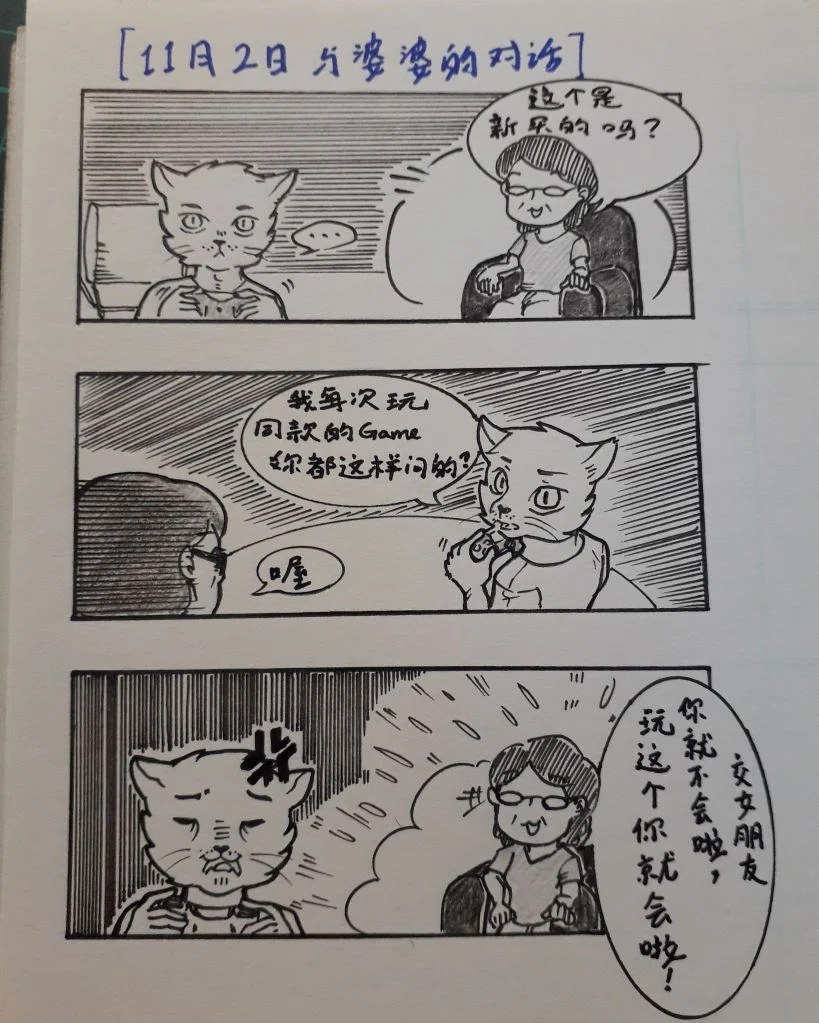 [11月2日 与婆婆的对话]
这个是
新买的吗?
...
我每次玩
同款的Game
你都这样问的?
喔
交女朋友
你就不会啦,
玩这个你就会啦!